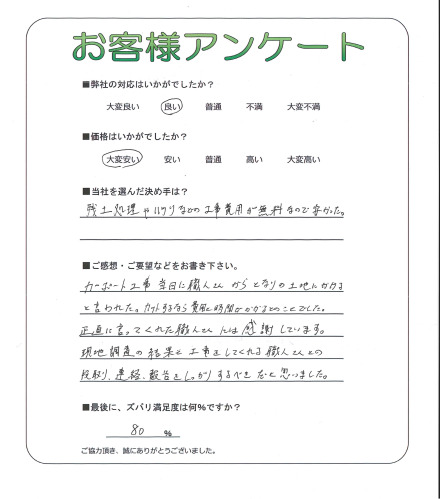 お客様アンケート
■弊社の対応はいかがでしたか？
大変良い 良い 普通 不満 大変不満
■価格はいかがでしたか？
大変安い 安い 普通 高い 大変高い
■当社を選んだ決め手は？
残土処理や などの工事費用が無料なので安かった。
■ご感想・ご要望などをお書き下さい。
カーポート工事当日に職人さんからとなりの土地にかかる
と言われた。カットするなら費用と時間がかかるとのことでした。
正直に言ってくれた職人さんには感謝しています。
現地調査の結果と工事をしてくれる職人さんとの
段取り、連絡、報告をしっかりするべきだと思いました。
■最後に、ズバリ満足度は何%ですか？
80 %
ご協力頂き、誠にありがとうございました。